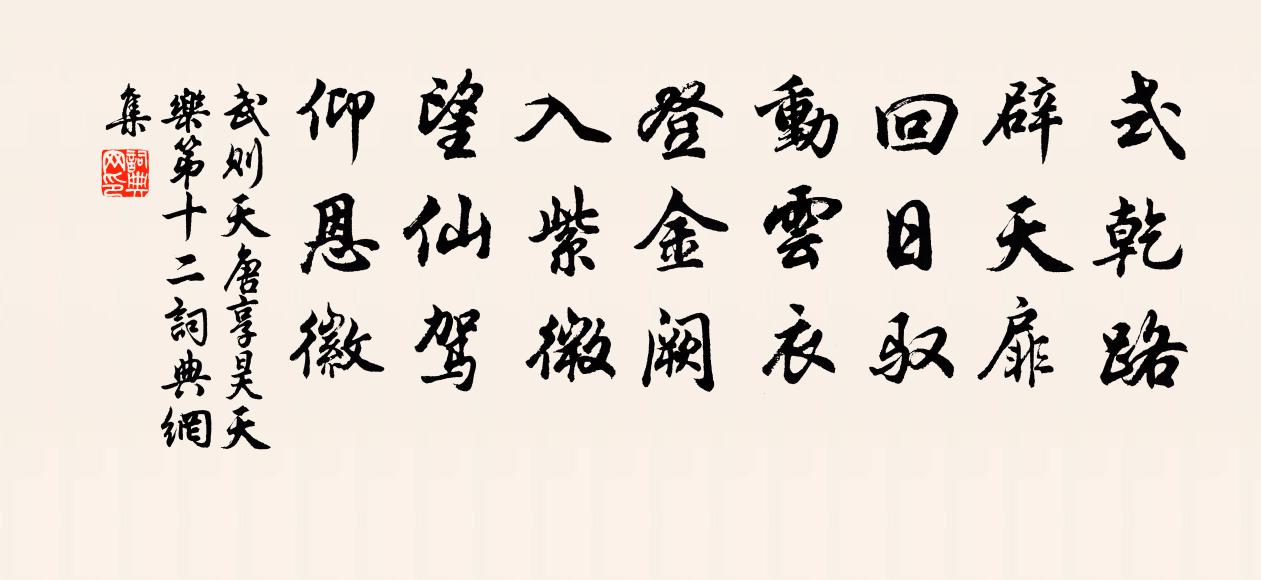 式乾路
辟天扉
回日驭
動雲衣
登金阙
入紫微
望仙駕
仰恩徽
武则天唐享昊天
樂第十二詞典網
集
詞典
网印